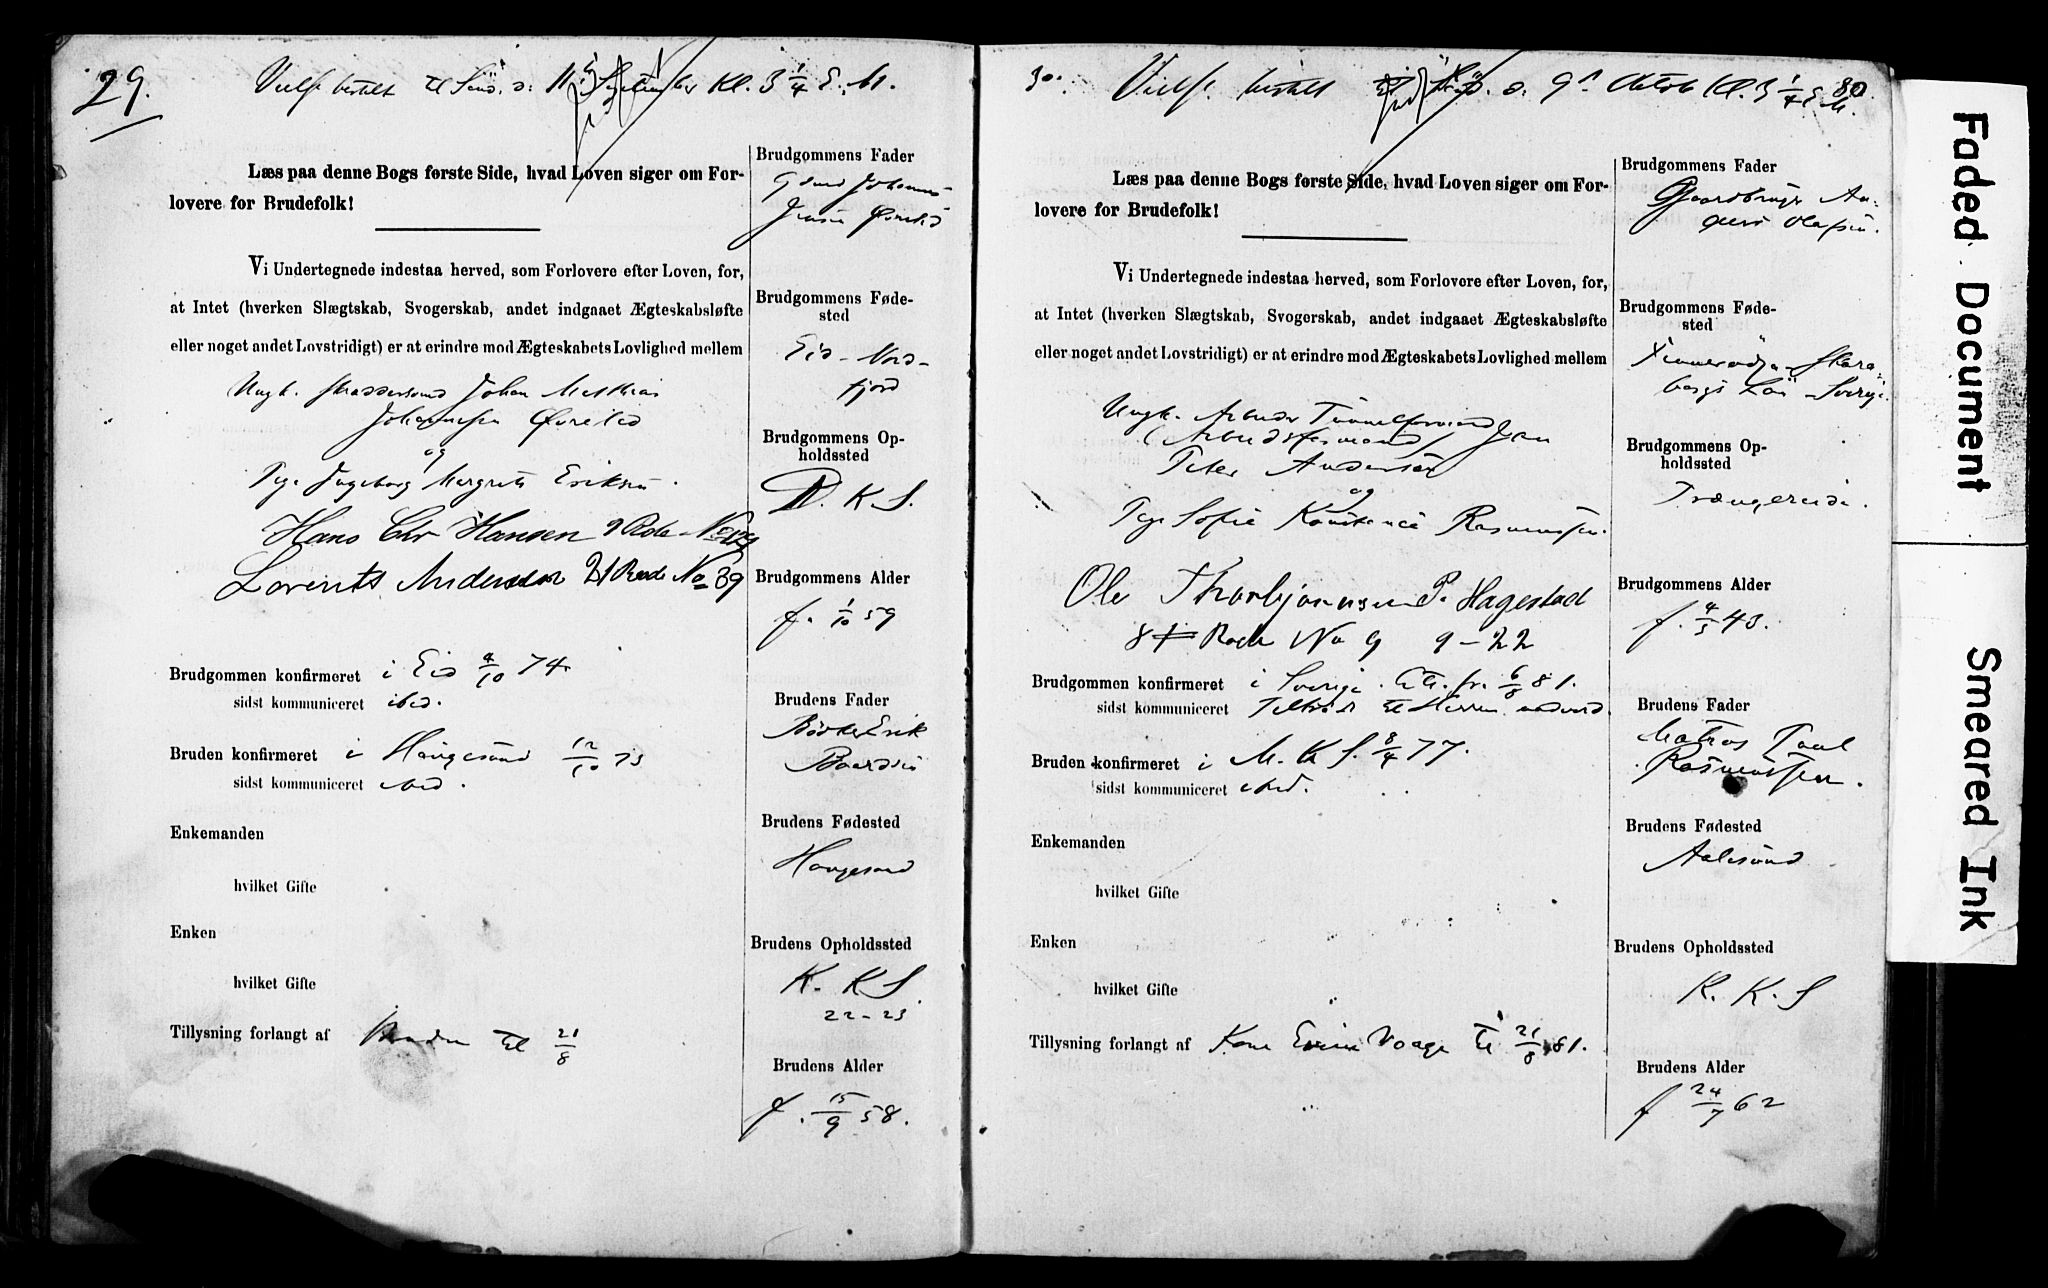 29.
Vielse bestilt til Sønd. d. 11 September Kl. 3 1/4 E. M.
Læs paa denne Bogs første Side, hvad Loven siger om For-
lovere for Brudefolk!
Vi Undertegnede indestaa herved, som Forlovere efter Loven, for,
at Intet (hverken Slægtskab, Svogerskab, andet indgaaet Ægteskabsløfte
eller noget andet Lovstridigt) er at erindre mod Ægteskabets Lovlighed mellem
Ungk. Johan Mathias
Johannesen
og
Pige Ingeborg Margrete Eriksen.
Hans Chr Hansen 9 Rode No
Lorents Andersen 21 Rode No 39
Brudgommen konfirmeret i Eid 4/10 74.
sidst kommuniceret ibid.
Bruden konfirmeret i Haugesund 12/10 73
sidst kommuniceret ibid.
Enkemanden
hvilket Gifte
Enken
hvilket Gifte
Tillysning forlangt af Bruden til 21/8
Brudgommens Fader
Johannes
Jensen
Brudgommens Føde-
sted
Eid - Nord-
fjord
Brudgommens Op-
holdssted
D. K. S.
Brudgommens Alder
f. 1/10 59
Brudens Fader
Bødker Erik
Baardsen
Brudens Fødested
Haugesund
Brudens Opholdssted
K. K. S.
22-23
Brudens Alder
f. 15/9 58.
30.
Vielse bestilt d. 9 Oktob Kl. 3 1/4 E. M.
80
Læs paa denne Bogs første Side, hvad Loven siger om For-
lovere for Brudefolk!
Vi Undertegnede indestaa herved, som Forlovere efter Loven, for,
at Intet (hverken Slægtskab, Svogerskab, andet indgaaet Ægteskabsløfte
eller noget andet Lovstridigt) er at erindre mod Ægteskabets Lovlighed mellem
Ungk. Arbeider Tunnelformand Jan
(Arbeidsformand)
Peter Andersen
og
Pige Sofie Konstance Rasmussen.
Ole Thorbjørnsen P. Hagestad
8 Rode No 9 9-22
Brudgommen konfirmeret i Sverige. Att. fr. 6/8 81.
sidst kommuniceret til Herrens
Bruden konfirmeret i M. K. S. 8/4 77.
sidst kommuniceret ibid.
Enkemanden
hvilket Gifte
Enken
hvilket Gifte
Tillysning forlangt af Kone Vaage til 21/8 81.
Brudgommens Fader
Gaardbruger An-
ders Olafsen.
Brudgommens Føde-
sted
Skara-
borgs Län - Sverige.
Brudgommens Op-
holdssted
Trængereide.
Brudgommens Alder
f. 4/5 43.
Brudens Fader
Matros Paul
Rasmussen.
Brudens Fødested
Aalesund
Brudens Opholdssted
K. K. S
Brudens Alder
f 24/7 62
Faded Document
Smeared Ink